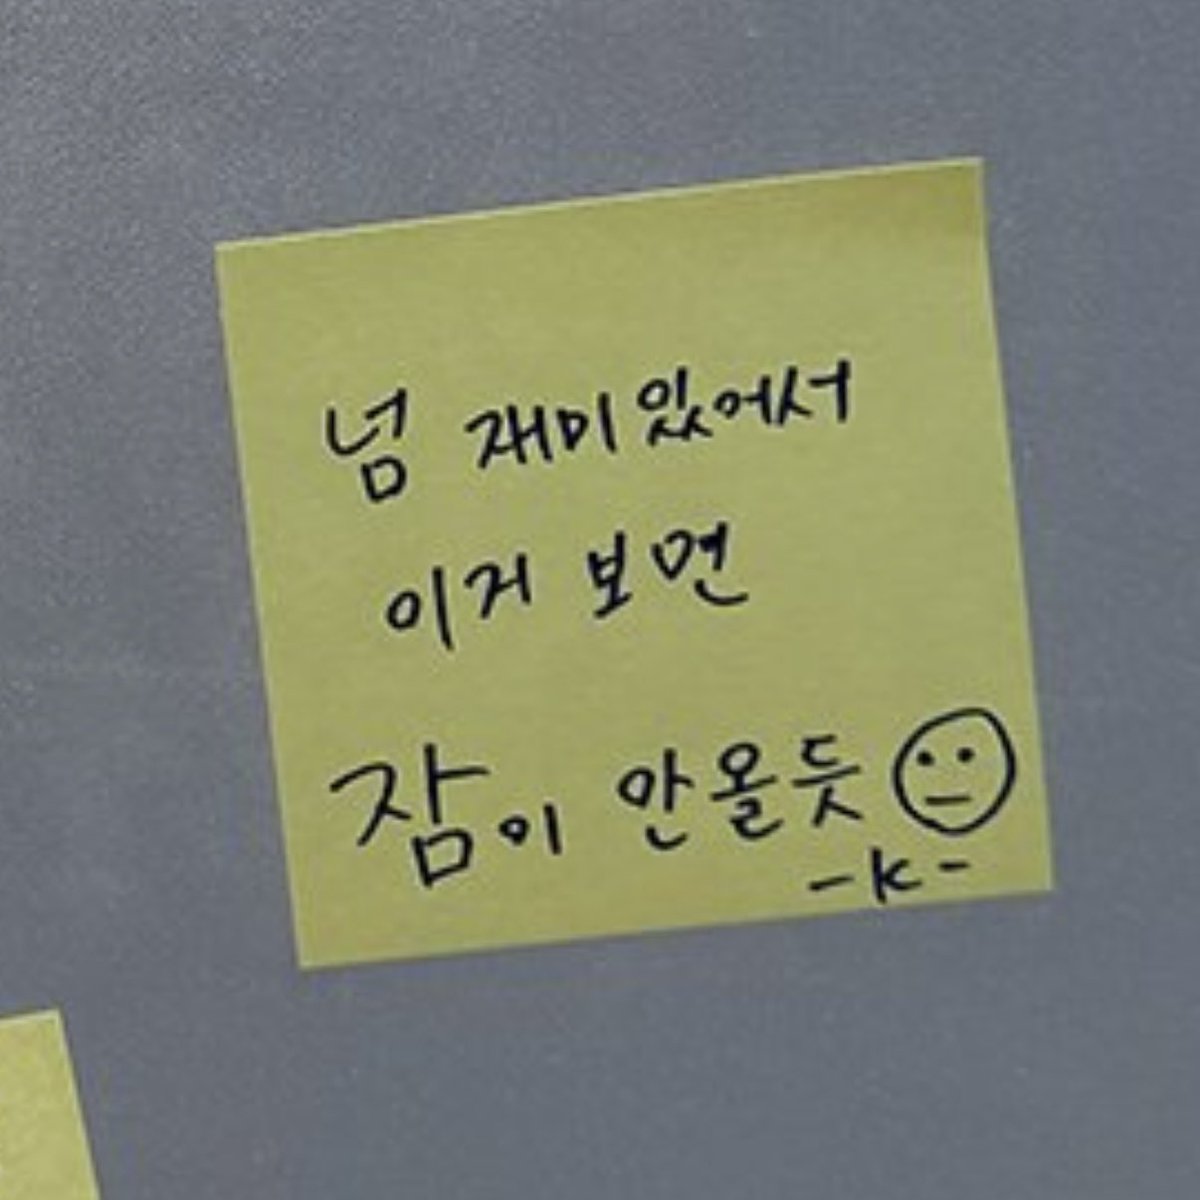 넘 재미있어서
이거 보면
잠이 안올듯
-K-